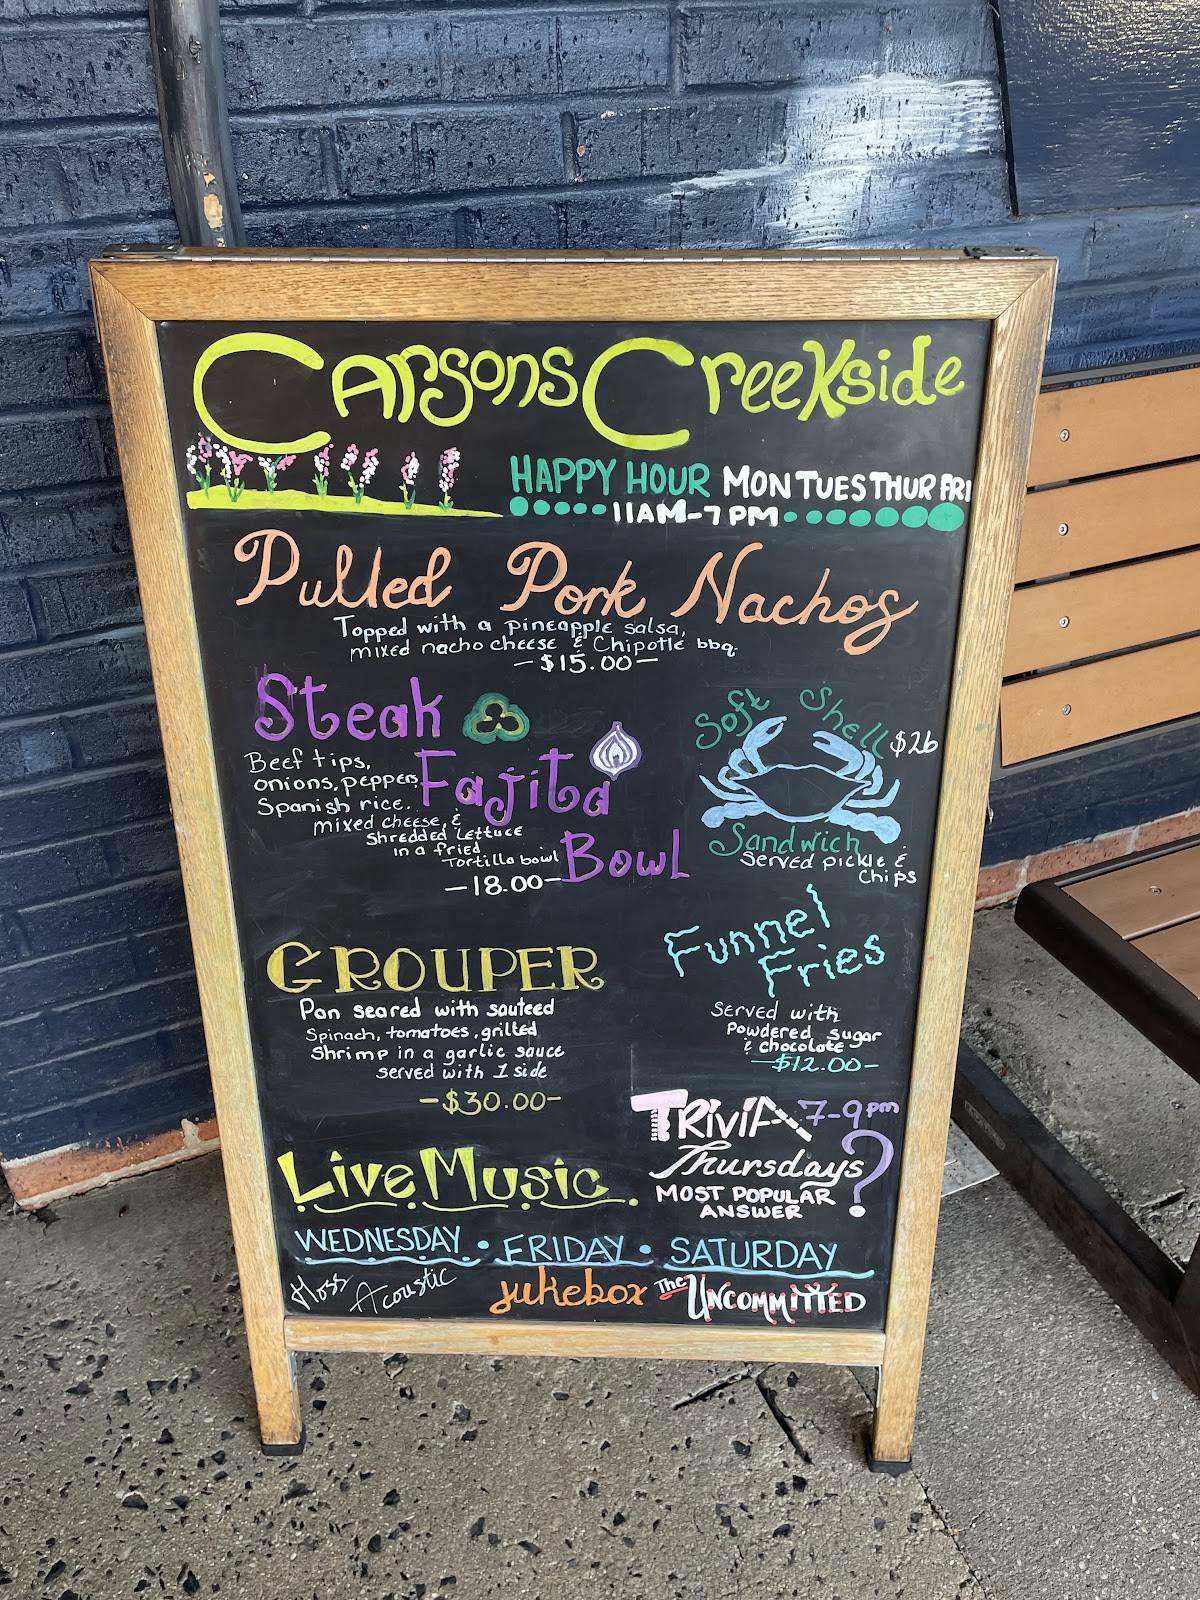 Carsons Creekside
HAPPY HOUR MON TUES THUR FRI
11AM-7PM
Pulled Pork Nachos
Topped with a pineapple salsa,
mixed nacho cheese & Chipotle bbq.
-$15.00-
Steak
Fajita
Bowl
Beef tips,
onions, peppers,
Spanish rice.
mixed cheese, &
shredded lettuce
in a fried
tortilla bowl
-18.00-
Soft Shell $26
Sandwich
Served pickle &
chips
GROUPER
Pan seared with sauteed
spinach, tomatoes, grilled
shrimp in a garlic sauce
served with 1 side
-$30.00-
Funnel
Fries
Served with
Powdered sugar
& chocolate
-$12.00-
TRiViA 7-9pm
Thursdays?
MOST POPULAR
ANSWER
Live Music
WEDNESDAY • FRIDAY • SATURDAY
Acoustic jukebox The UNCOMMITTED